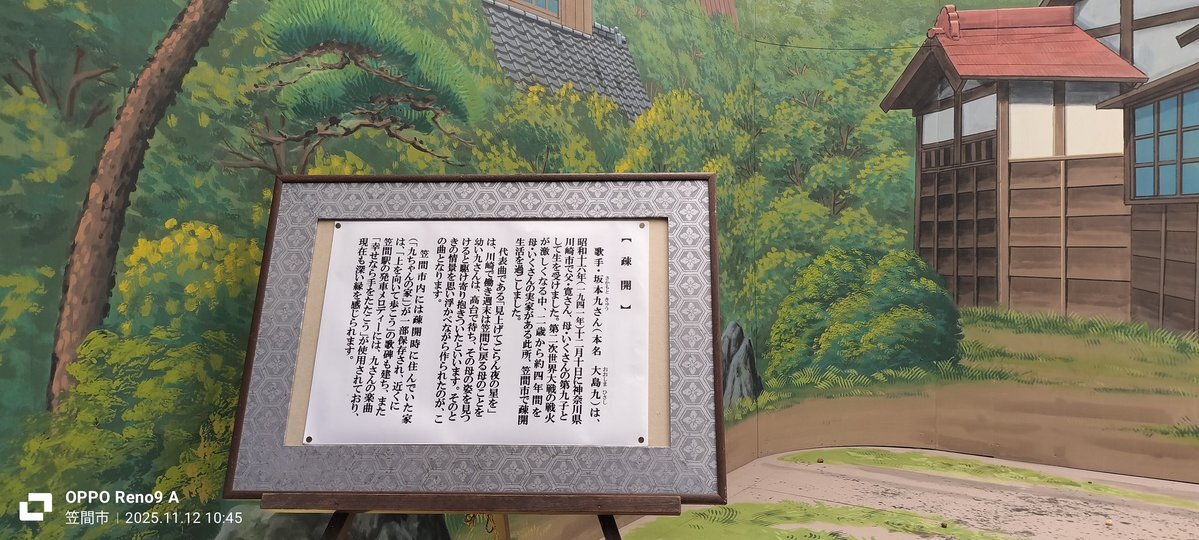 【疎開】
歌手・坂本九さん(本名 大島九)は、
さかもと きゅう
おおしま ひさし
昭和十六年(一九四一年)十二月十日に神奈川県
川崎市で父・寛さん、母・いくさんの第九子と
して生を受けました。第二次世界大戦の戦火
が激しくなる中、二歳から約四年間を
母・いくさんの実家がある此所、笠間市で疎開
生活を過ごしました。
代表曲である「見上げてごらん夜の星を」
は、川崎で働き週末は笠間に戻る母のことを
幼い九さんは、高台で待ち、その母の姿を見つ
けると駆け寄り抱きついたといいます。そのと
きの情景を思い浮かべながら作られたのが、こ
の曲となります。
笠間市内には疎開時に住んでいた家
(「九ちゃんの家」)が一部保存され、近くに
は、「上を向いて歩こう」の歌碑も建ち、また
笠間駅の発車メロディーには、九さんの楽曲
「幸せなら手をたたこう」が使用されており、
現在も深い縁を感じられます。
OPPO Reno9 A
笠間市 | 2025.11.12 10:45